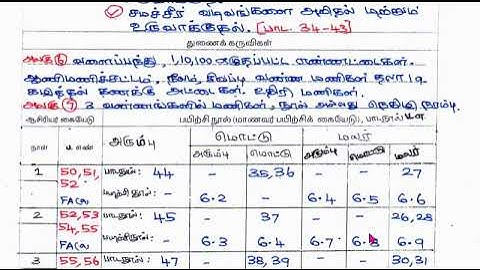 சமச்சீர் வடிவங்களை அறிதல் மற்றும்
உருவாக்குதல். [பாட. 34-43]
துணைக் கருவிகள்
அலகு 6 வளைப்பந்து, 1,10,100 எடுக்கப்பட்ட எண்ணட்டைகள்.
ஆணிமணிச்சட்டம், நீலம், சிவப்பு வண்ண மணிகள் தலா 19
கழித்தல் கணக்கு அட்டைகள். உதிரி மணிகள்.
அலகு 7 3 வண்ணங்களில் மணிகள், நூல் அல்லது நெகிழி நரம்பு.
ஆசிரியர் கையேடு பயிற்சி நூல் (மாணவர் பயிற்சிக் கையேடு), பாடநூல் ப.எ
நாள் ப.எண் அரும்பு மொட்டு மலர்
அரும்பு மொட்டு அரும்பு மொட்டு மலர்
1 50,51, பாடநூல்: 44 - 35,36 - - 27
52 பயிற்சி நூல்:
FA(a) - 6.2 - 6.4 6.5 6.6
2 52,53 பாடநூல்: 45 - 37 - - 26,28
54,55 பயிற்சிநூல்:
FA(a) - 6.3 6.4 6.7 6.8 6.9
3 55,56 பாடநூல்: 47 - 38,39 - - 30,31